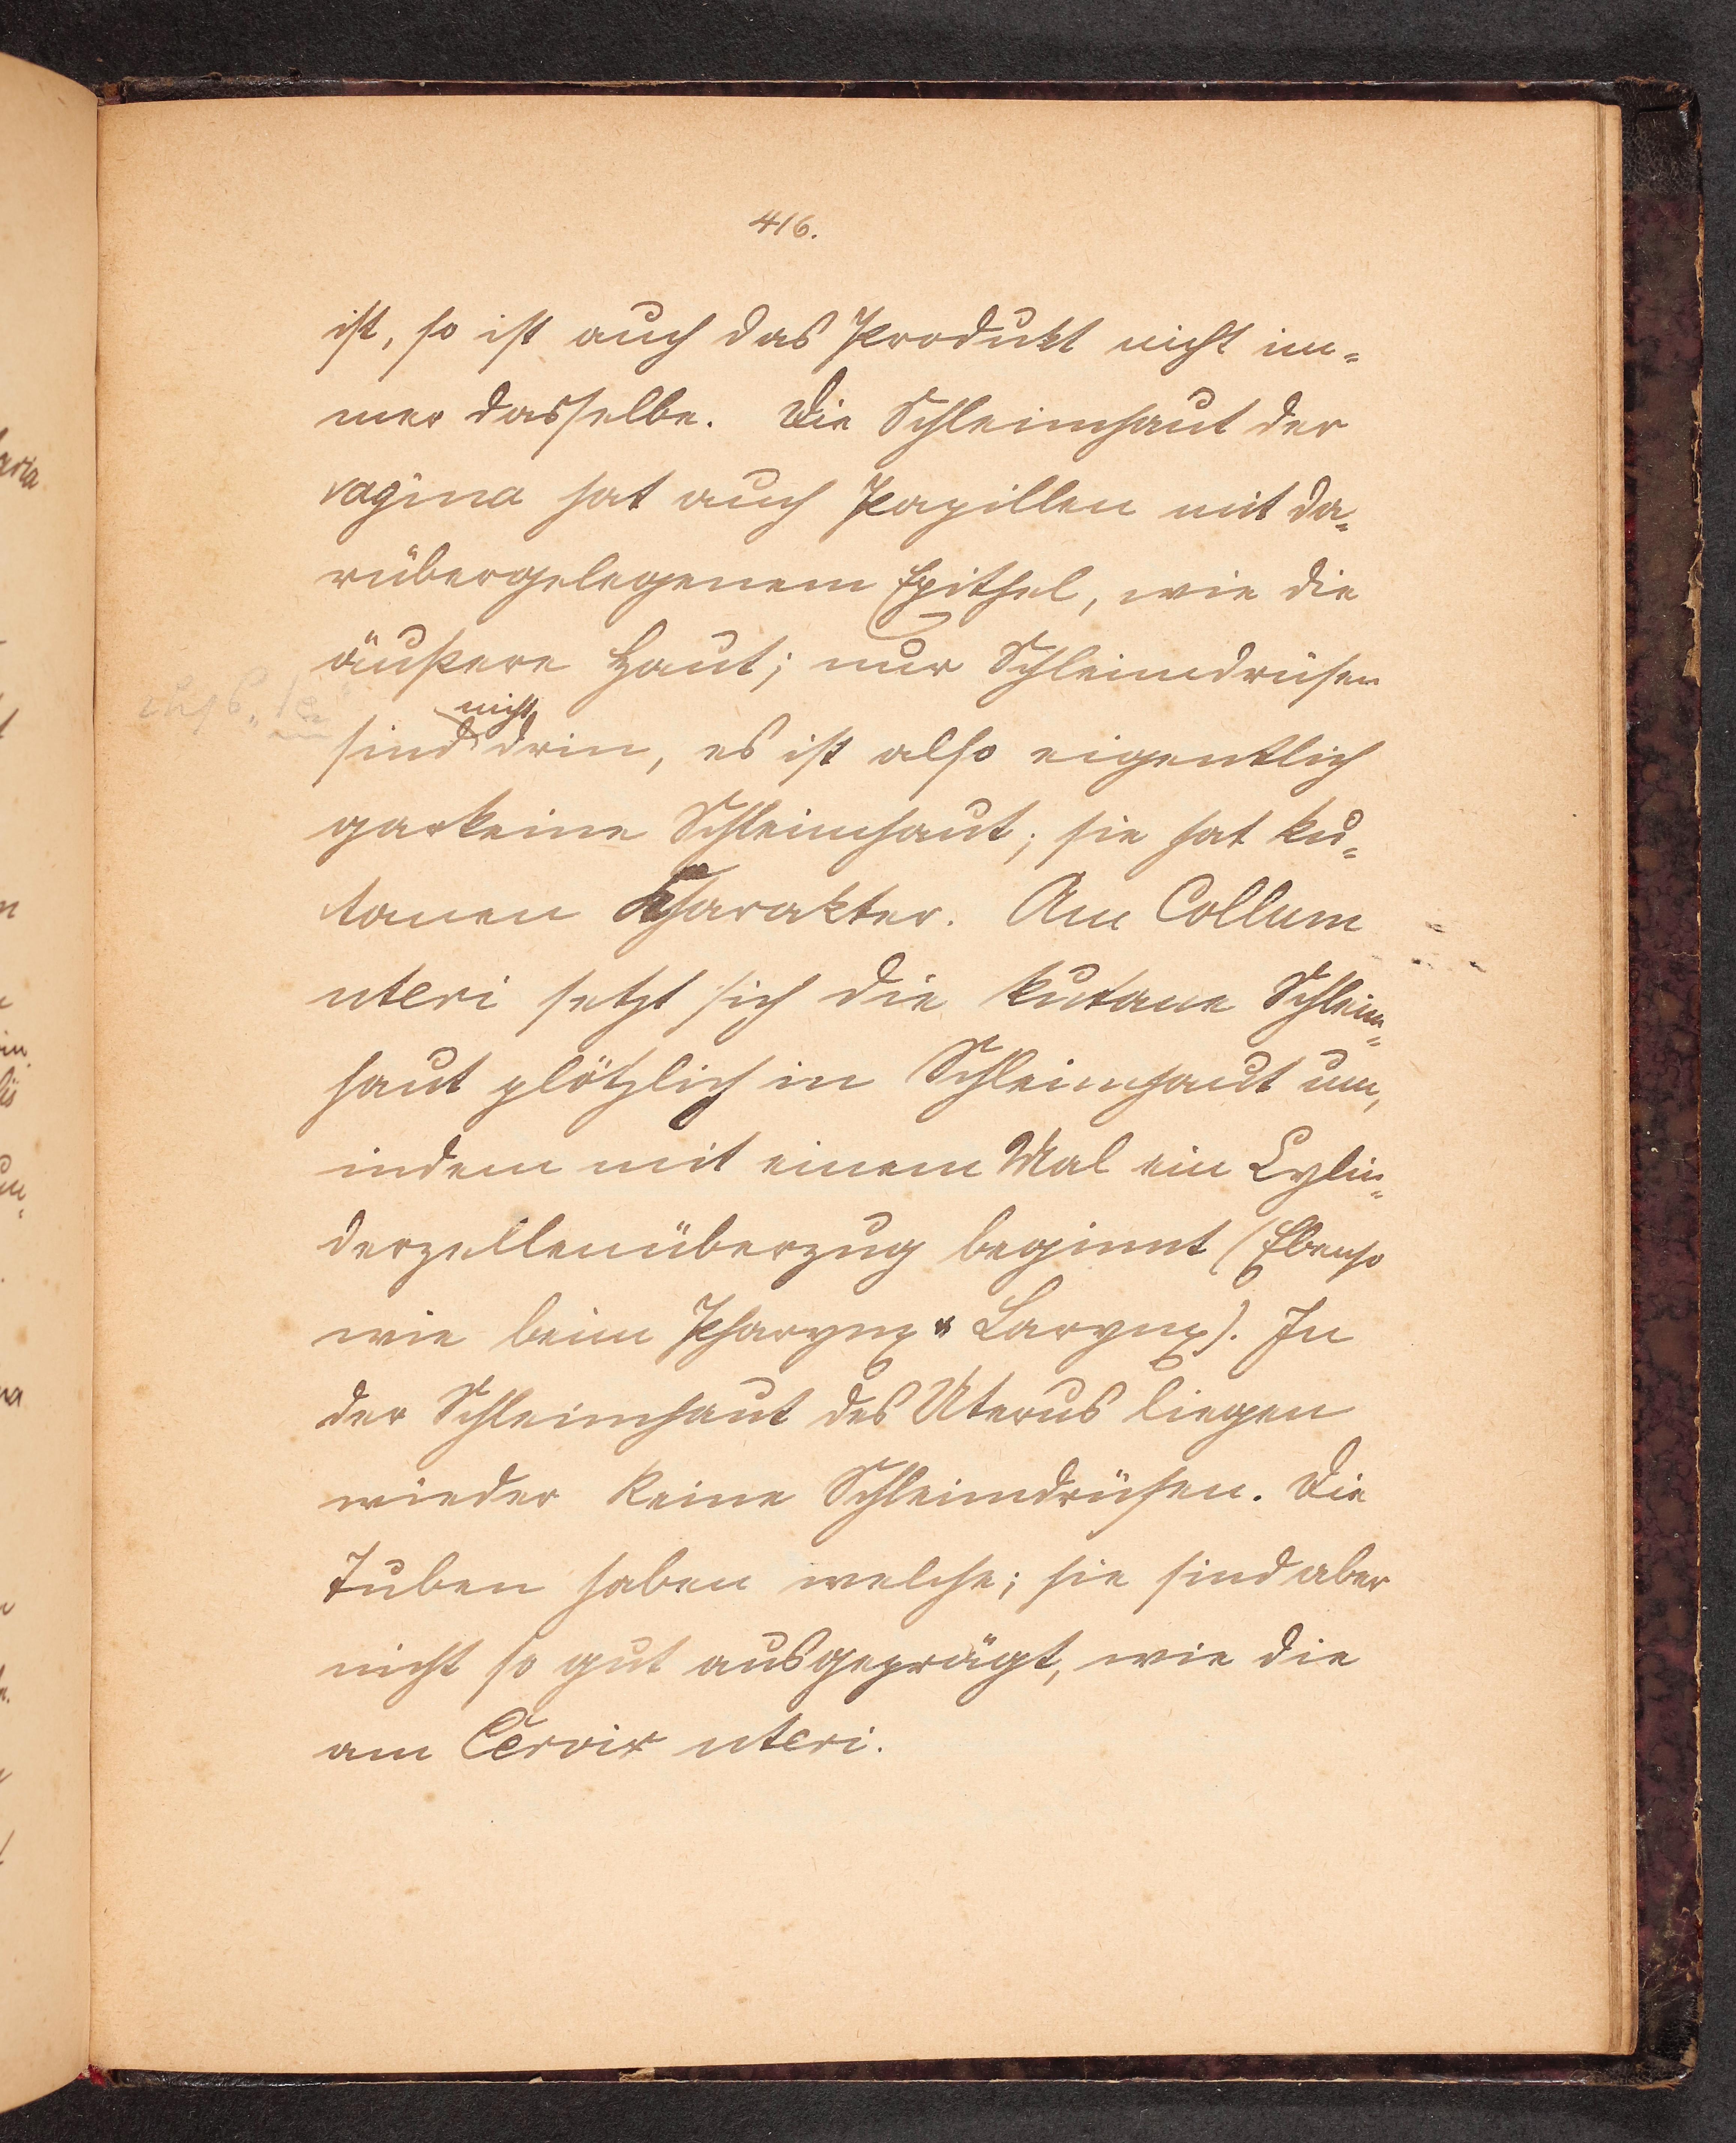 416.
ist, so ist auch das Produkt nicht im-
mer dasselbe. Die Schleimhaut der
vagina hat auch Papillen mit da-
rübergelegenem Epithel, wie die
äußere Haut; nur Schleimdrüsen
nicht
sind drin, es ist also eigentlich
garkeine Schleimhaut; sie hat ku-
tanen Charakter. Am Collum
uteri setzt sich die kutane Schleim-
haut plötzlich in Schleimhaut um,
indem mit einem Mal ein Cylin-
derzellenüberzug beginnt (Ebenso
wie beim Pharynx u Larynx). In
der Schleimhaut des Uterus liegen
wieder keine Schleimdrüsen. Die
Tuben haben welche; sie sind aber
nicht so gut ausgeprägt, wie die
am Cervix uteri.